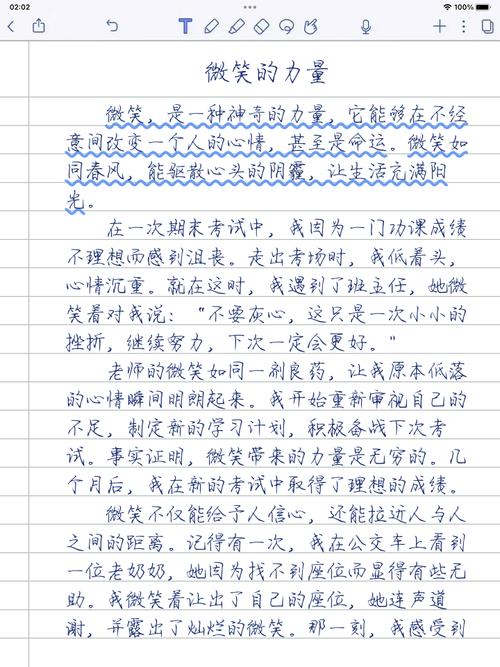 02:02
100%
微笑的力量
微笑，是一种神奇的力量，它能够在不经
意间改变一个人的心情，甚至是命运。微笑如
同春风，能驱散心头的阴霾，让生活充满阳
光。
在一次期末考试中，我因为一门功课成绩
不理想而感到沮丧。走出考场时，我低着头，
心情沉重。就在这时，我遇到了班主任，她微
笑着对我说：“不要灰心，这只是一次小小的
挫折，继续努力，下次一定会更好。”
老师的微笑如同一剂良药，让我原本低落
的心情瞬间明朗起来。我开始重新审视自己的
不足，制定新的学习计划，积极备战下次考
试。事实证明，微笑带来的力量是无穷的。几
个月后，我在新的考试中取得了理想的成绩。
微笑不仅能给予人信心，还能拉近人与人
之间的距离。记得有一次，我在公交车上看到
一位老奶奶，她因为找不到座位而显得有些无
助。我微笑着让出了自己的座位，她连声道
谢，并露出了灿烂的微笑。那一刻，我感受到